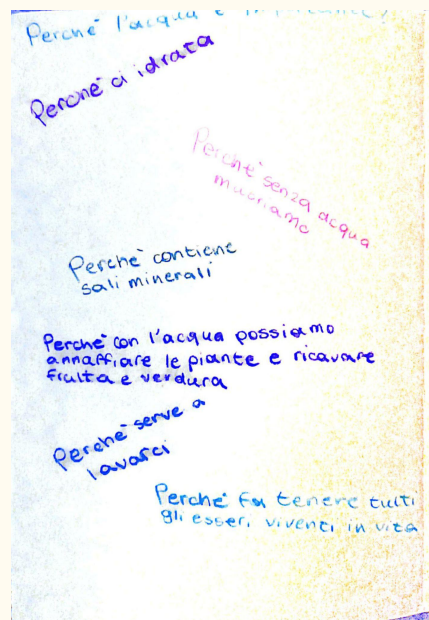 Perchè l'acqua è importante?
Perchè ci idrata
Perchè senza acqua
muoriamo
Perchè contiene
sali minerali
Perchè con l'acqua possiamo
annaffiare le piante e ricavare
frutta e verdura
Perchè serve a
lavarci
Perchè fa tenere tutti
gli esseri viventi in vita